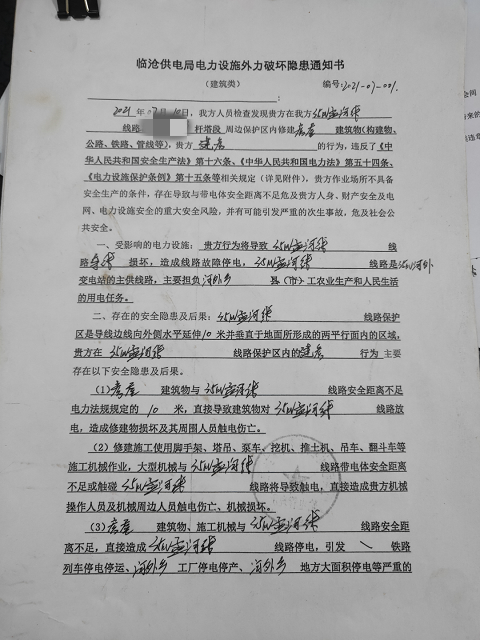 临沧供电局电力设施外力破坏隐患通知书
（建筑类） 编号:2021-07-001.
：
2021年7月10日，我方人员检查发现贵方在我方35kV云河线
线路 杆塔段 周边保护区内修建房屋 建筑物(构建物、
公路、铁路、管线等)，贵方 建房 的行为，违反了《中
华人民共和国安全生产法》第十六条、《中华人民共和国电力法》第五十四条、
《电力设施保护条例》第十五条等相关规定（详见附件）。贵方作业场所不具备
安全生产的条件，存在导致与带电体安全距离不足危及贵方人身、财产安全及电
网、电力设施安全的重大安全风险，并有可能引发严重的次生事故，危及社会公
共安全。
一、受影响的电力设施：贵方行为将导致 35kV 河线 线
路 损坏，造成线路故障停电， 35kV 河线 线路是35kV河外
变电站的主供线路，主要担负 河外乡 县（市）工农业生产和人民生活
的用电任务。
二、存在的安全隐患及后果：35kV 河线 线路保护
区是导线边线向外侧水平延伸10米并垂直于地面所形成的两平行面内的区域，
贵方在 35kV 河线 线路保护区内的建房 行为 主要
存在以下安全隐患及后果。
（1）房屋 建筑物与 35kV 河线 线路安全距离不足
电力法规规定的 10 米，直接导致建筑物对 35kV 河线 线路放
电，造成修建物损坏及其周围人员触电伤亡。
（2）修建施工使用脚手架、塔吊、泵车、挖机、推土机、吊车、翻斗车等
施工机械作业，大型机械与 35kV 河线 线路带电体安全距离
不足或触碰 35kV 河线 线路将导致触电，直接造成贵方机械
操作人员及机械周边人员触电伤亡、机械损坏。
（3）房屋 建筑物、施工机械与 35kV 河线 线路安全距
离不足，直接造成 35kV 河线 线路停电，引发 \ 铁路
列车停电停运、河外乡 工厂停电停产、河外乡 地方大面积停电等严重的